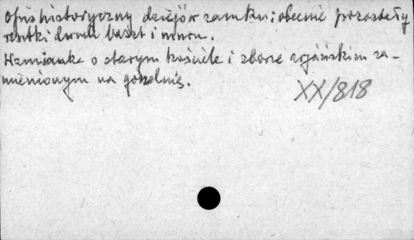 Opis historyczny dziejów zamku; obecnie pozostały
resztki dwóch baszt i muru.
Wzmianka o starym kościele i zborze ariańskim za-
mienionym na gorzelnię.
XX/818